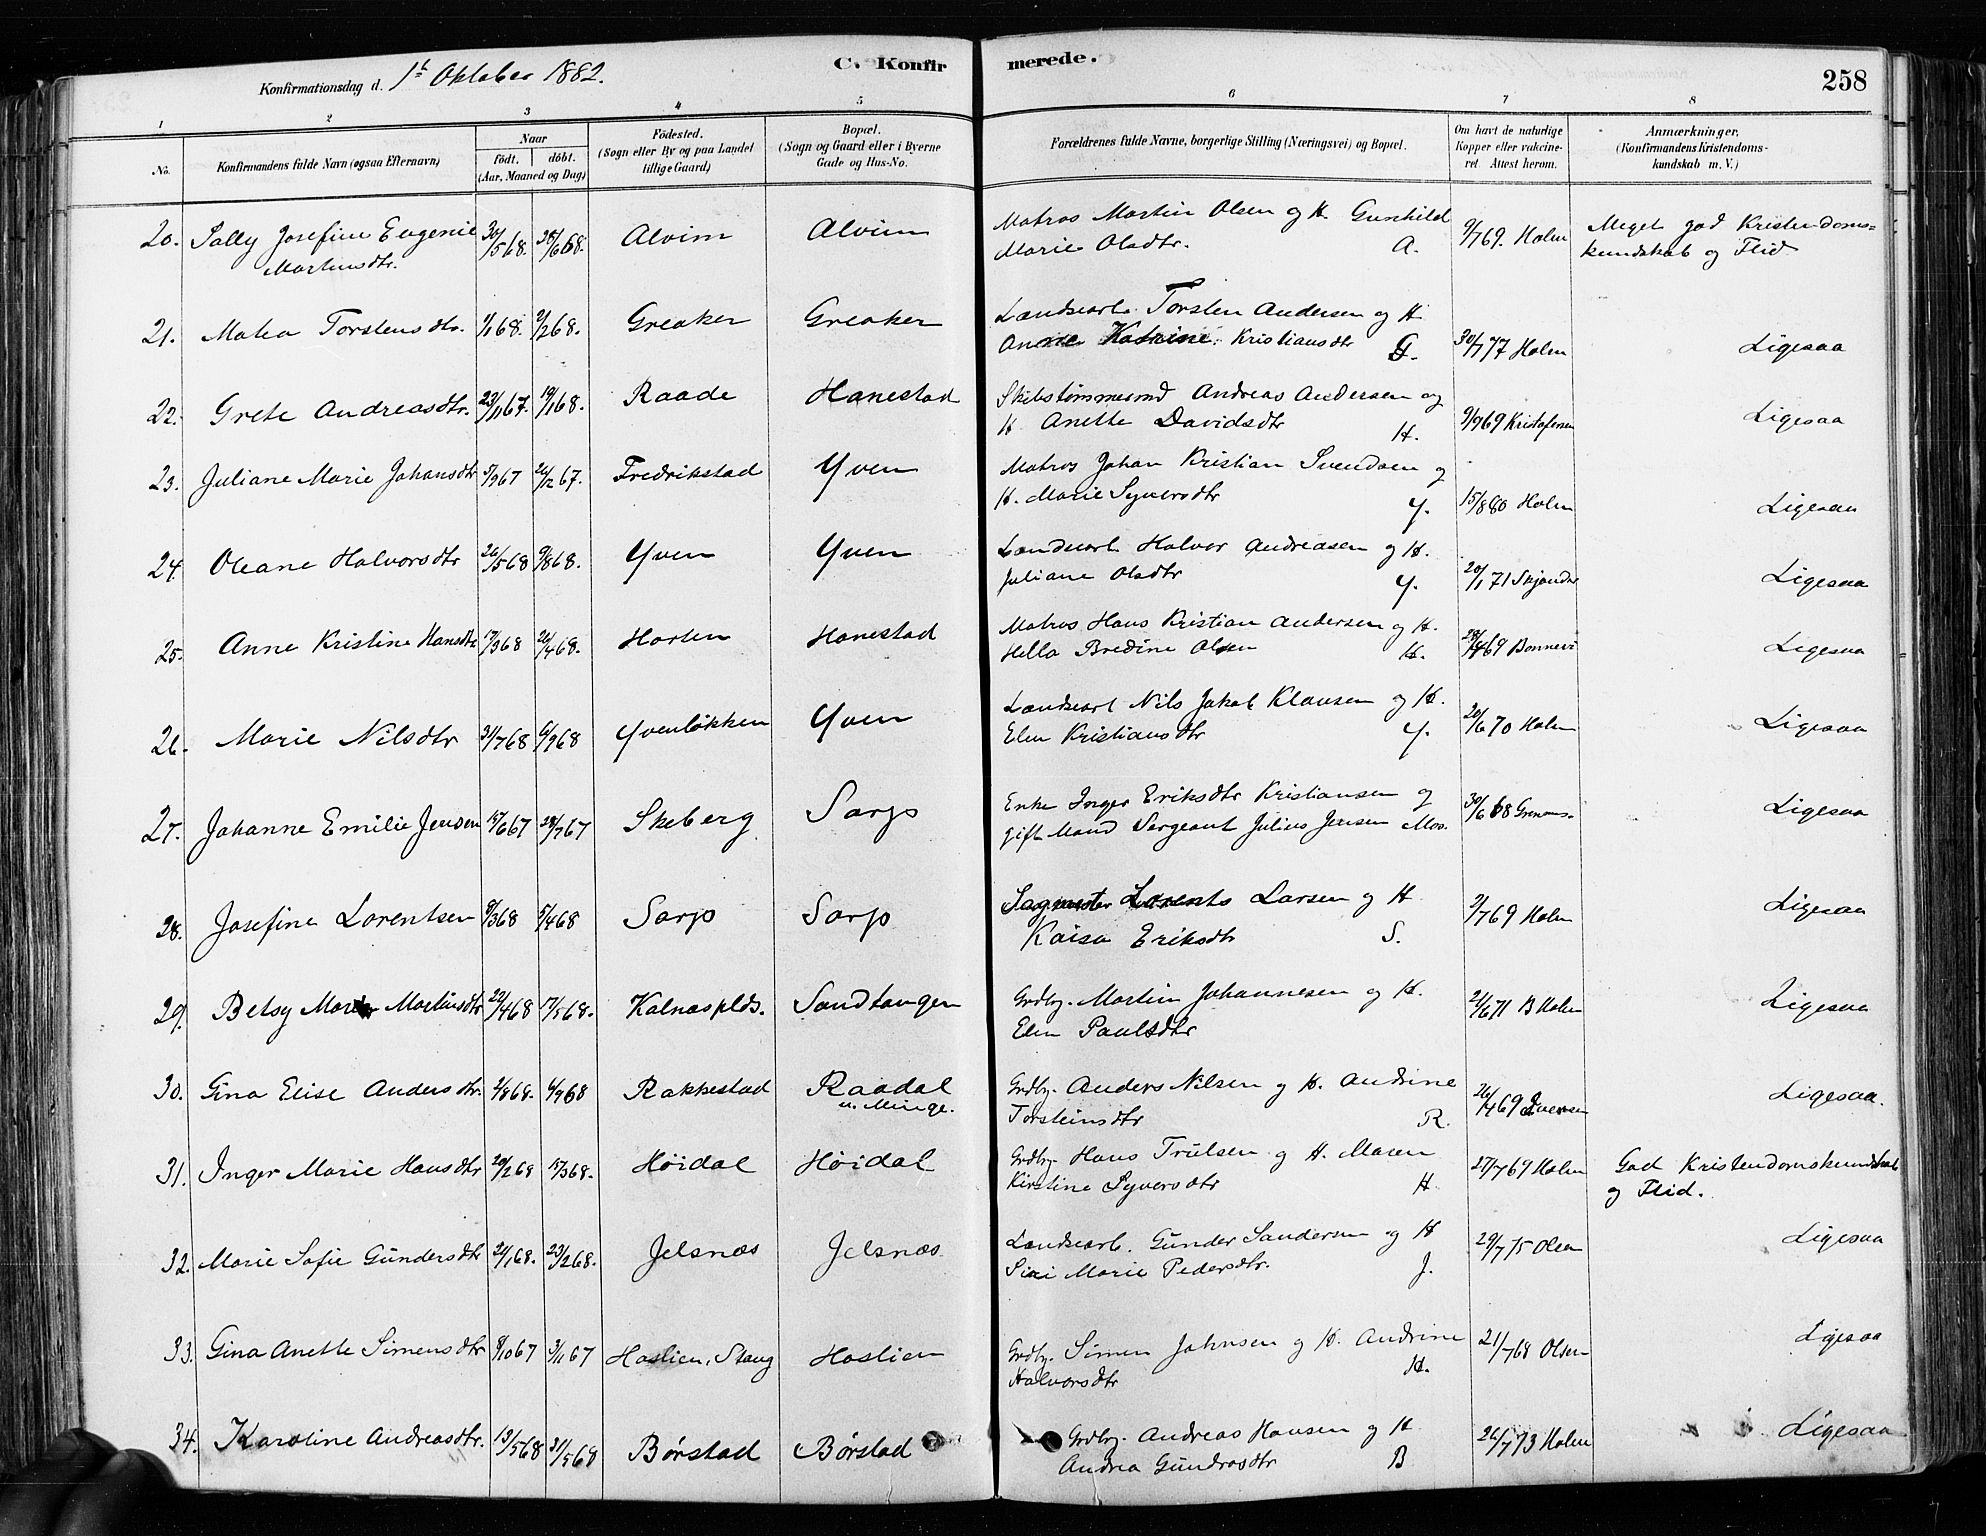 Konfirmationsdag d. 1st Oktober 1882. C. Konfirmerede. 258
1 2 3 4 5 6 7 8
No. Konfirmandens fulde Navn (ogsaa Efternavn) Naar født. døbt. (Aar, Maaned og Dag) Fødested. (Sogn eller By og paa Landet tillige Gaard) Bopæl. (Sogn og Gaard eller i Byerne Gade og Hus-No. Forældrenes fulde Navne, borgerlige Stilling (Næringsvei) og Bopæl. Om havt de naturlige Kopper eller vakcineret. Attest herom. Anmærkninger, (Konfirmandens Kristendomskundskab m. V.)
20. Sally Josefine Eugenie 30/568. 28/668. Alvim Alvim Matros Martin Olsen og H. Gunhild 9/769. Holm Meget god Kristendoms=
Martinsdtr. Marie Olsdtr. A. kundskab og Flid
21. Matea Torstensdtr. 1/168. 2/268. Greaker Greaker Landsarb. Torsten Andersen og H.
Anne Katrine Kristiansdtr G. 30/777 Holm Ligesaa
22. Grete Andreasdtr. 23/1167. 19/168. Raade Hanestad Skibstømmermd Andreas Andersen og
H Anette Davidsdtr H. 9/969 Kristofersen Ligesaa
23. Juliane Marie Johansdtr 5/967 26/1267. Fredrikstad Yven Matros Johan Kristian Svendsen og
H. Marie Syversdtr Y. 15/880 Holm Ligesaa
24. Oleane Halvorsdtr 26/568 9/868. Yven Yven Landsarb. Halvor Andreasen og H.
Juliane Olsdtr Y. 20/171 Skjander Ligesaa
25. Anne Kristine Hansdtr 17/368 26/468. Horten Hanestad Matros Hans Kristian Andersen og H.
Hella Bredine Olsen H. 28/469 Bonnevi Ligesaa
26. Marie Nilsdtr 31/768 6/968 Yvenløkken Yven Landsarb Nils Jakob Klausen og H.
Elen Kristiansdtr Y. 20/670 Holm Ligesaa
27. Johanne Emilie Jensen 15/667 28/767 Skeberg Sarp Enke Inger Eriksdtr Kristiansen og
gift Mand Sergeant Julius Jensen Mos. 30/668 Ligesaa
28. Josefine Lorentsen 8/368 5/468 Sarp Sarp Sagmester Lorents Larsen og H
Kaisa Eriksdtr S. 2/769 Holm Ligesaa
29. Betsy Marie Martinsdtr 22/468 17/568. Kalnæsplds. Sandtangen Grdbr. Martin Johannesen og H. 21/671 B Holm Ligesaa
Elen Paulsdtr
30. Gina Elise Andersdtr. 2/868. 6/968 Rakkestad Raadal Grdbr. Anders Nilsen og H. Andrine
u. Minge. Torsteinsdtr R. 26/469 Iversen Ligesaa.
31. Inger Marie Hansdtr 20/268 15/368. Høidal Høidal Grdbr. Hans Trulsen og H. Maren 27/769 Holm God Kristendomskundskab
Kirstine Syversdtr H. og Flid.
32. Marie Sofie Gundersdtr 21/168. 23/268. Jelsnæs Jelsnæs Landsarb. Gunder Sandersen og H
Siri Marie Pedersdtr. J. 29/775 Olsen Ligesaa
33. Gina Anette Simensdtr 8/1067 3/1167 Haslien, Skaug Haslien Grdbr. Simen Johnsen og H. Andrine 21/768 Olsen Ligesaa
Halvorsdtr H.
34. Karoline Andreasdtr. 13/568 31/568 Børstad Børstad Grdbr. Andreas Hansen og H 26/773 Holm Ligesaa
Andrea Gundrosdtr B